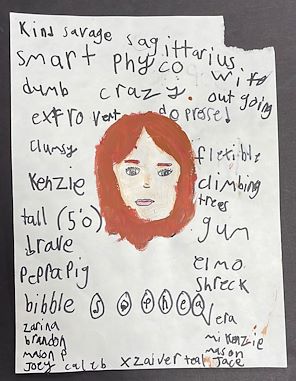 Kind savage sagittarius
smart phyco wit
dumb crazy. out going
extrovert doprese!
clumsy flexible
Kenzie climbing
trees
tall (5'0) gum
brave
Peppa Pig elmo
Shreck
bibble Sophea
Vera
zarina mikenzie
brandon mason
mason P
Joey caleb xzaiver team Jace